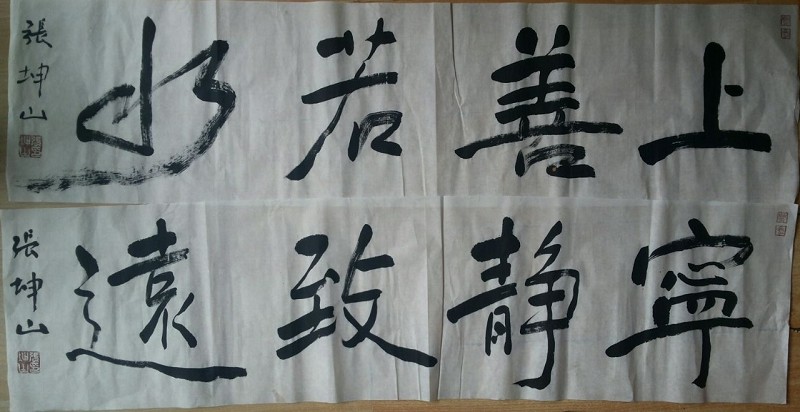 上善若水
張坤山
寧靜致遠
張坤山